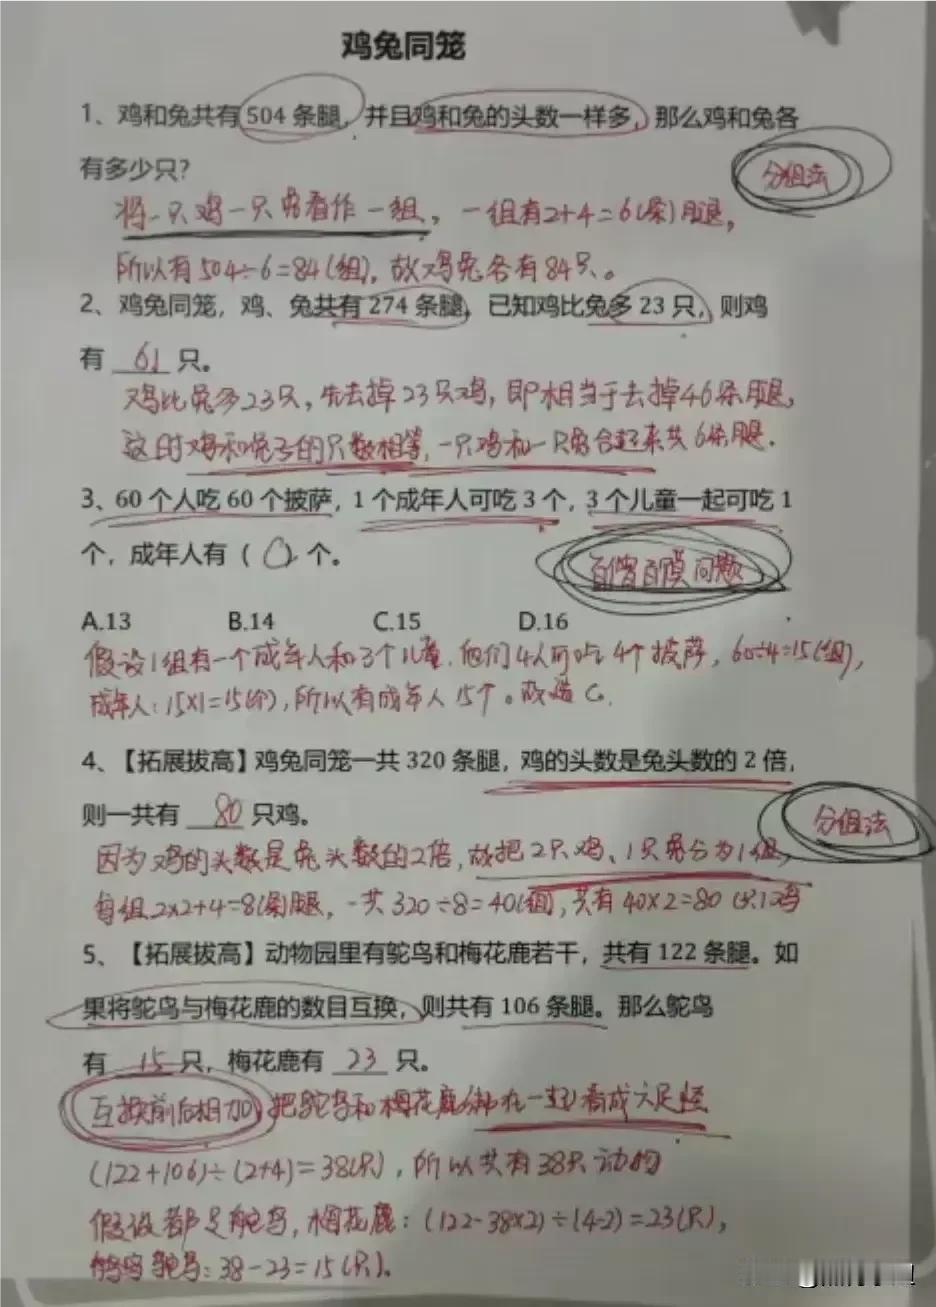 鸡兔同笼
1、鸡和兔共有 504 条腿，并且鸡和兔的头数一样多，那么鸡和兔各
有多少只？
分组法
将一只鸡一只兔看作一组，一组有2+4=6(条)腿，
所以有504÷6=84(组)，故鸡兔各有84只。
2、鸡兔同笼，鸡、兔共有 274 条腿，已知鸡比兔多 23 只，则鸡
有 61 只。
鸡比兔多23只，先去掉23只鸡，即相当于去掉46条腿，
这时鸡和兔子的只数相等，一只鸡和一只兔合起来共6条腿.
3、60 个人吃 60 个披萨，1 个成年人可吃 3 个，3 个儿童一起可吃 1
个，成年人有（ C ）个。
百僧百馍问题
A.13 B.14 C.15 D.16
假设1组有一个成年人和3个儿童，他们4人可吃4个披萨，60÷4=15(组)，
成年人：15×1=15(个)，所以有成年人15个。故选C.
4、【拓展拔高】鸡兔同笼一共 320 条腿，鸡的头数是兔头数的 2 倍，
则一共有 80 只鸡。
分组法
因为鸡的头数是兔头数的2倍，故把2只鸡、1只兔分为1组，
每组2×2+4=8(条)腿，一共320÷8=40(组)，共有40×2=80(只)鸡
5、【拓展拔高】动物园里有鸵鸟和梅花鹿若干，共有 122 条腿。如
果将鸵鸟与梅花鹿的数目互换，则共有 106 条腿。那么鸵鸟
有 15 只，梅花鹿有 23 只。
互换前后相加，把鸵鸟和梅花鹿绑在一起看成六足怪
(122+106)÷(2+4)=38(只)，所以共有38只动物
假设都是鸵鸟，梅花鹿：(122-38×2)÷(4-2)=23(只)，
鸵鸟：38-23=15(只).